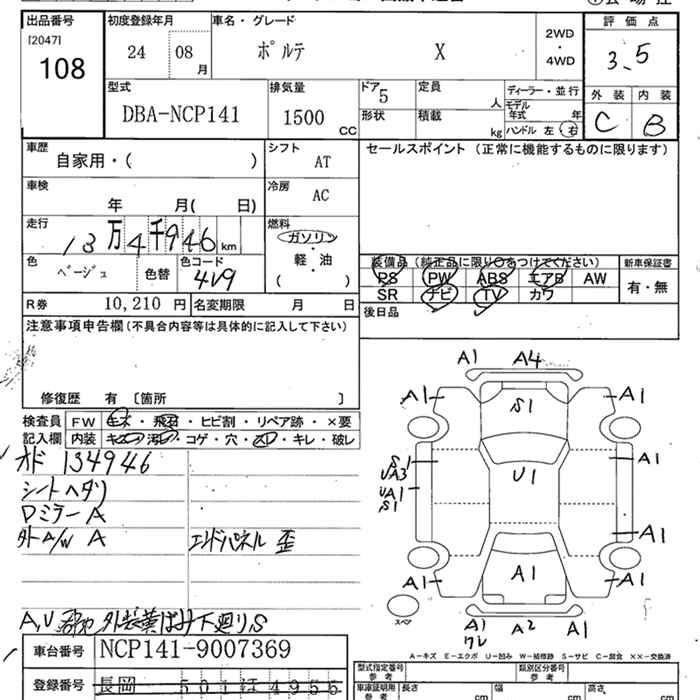 出品番号 初度登録年月 車名・グレード 評価点
[2047]
108 24 08月 ポルテ X 2WD・4WD 3.5
型式 排気量 ドア 5 定員 人 ディーラー・並行 外装 内装
DBA-NCP141 1500 CC 形状 積載 kg モデル年式 年 C B
ハンドル 左 右
車歴 自家用・( ) シフト AT セールスポイント (正常に機能するものに限ります)
車検 年 月( 日) 冷房 AC
走行 13万4千946 km 燃料 ガソリン・軽・油 ( )
色 ベージュ 色替 色コード 4V9
装備品 (純正品に限り○をつけてください) 新車保証書
PS PW ABS エアB AW 有・無
SR ナビ TV カワ
R券 10,210 円 名変期限 月 日 後日品
注意事項申告欄 (不具合内容等は具体的に記入して下さい)
修復歴 有 〔箇所 〕
検査員 FW キズ・飛石・ヒビ割・リペア跡・×要
記入欄 内装 キズ・汚レ・コゲ・穴・スレ・キレ・破レ
オド 134946
シートヘタリ
Dミラー A
外A/W A エンドパネル 歪
A,U 下廻りS
A1 A4
A1 S1 A1
S1 A1
UA3 U1
UA1
S1 A1
A1 A1 A1
スペア A1 A2 A1
ワレ
A-キズ E-エクボ U-凹み W-補修跡 S-サビ C-腐食 XX-交換済
車台番号 NCP141-9007369
型式指定番号 類別区分番号
参考 参考
登録番号 長岡 501 ほ 4955
車庫証明用参考 長さ cm 幅 cm 高さ cm